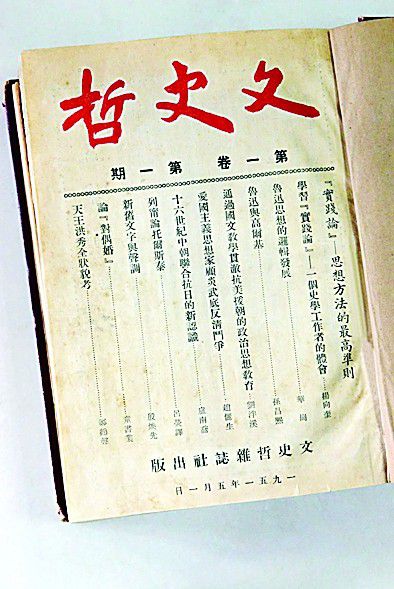 文史哲
第一卷 第一期
『實踐論』——思想方法的最高準則
學習『實踐論』——一個史學工作者的體會 楊向奎
魯迅思想的邏輯發展 華崗
魯迅與高爾基 孫昌熙
通過國文教學貫澈抗美援朝的政治思想教育 劉泮溪
愛國主義思想家顧炎武底反清鬥爭 趙儷生
十六世紀中朝聯合抗日的新認識 盧南喬
列甯論托爾斯泰 呂熒譯
新舊文字與聲調 殷煥先
論『對偶婚』 童書業
天王洪秀全狀貌考 鄭鶴聲
文史哲雜誌社出版
一九五一年五月一日